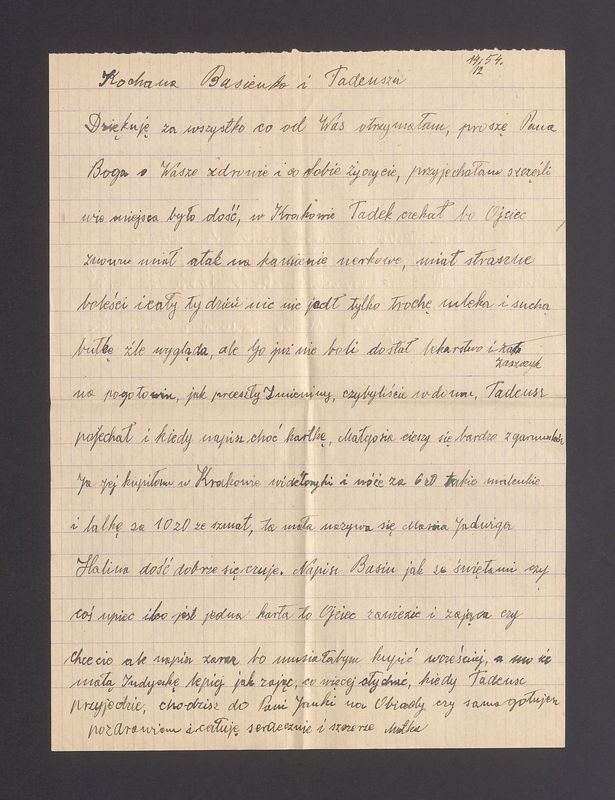 19/12 54.
Kochana Basieńko i Tadeuszu
Dziękuję za wszystko co od Was otrzymałam, proszę Pana
Boga o Wasze zdrowie i co sobie życzycie, przyjechałam szczęśli
wie miejsca było dość, w Krakowie Tadek czekał bo Ojciec
znowu miał atak na kamienie nerkowe, miał straszne
boleści i cały tydzień nic nie jadł tylko trochę mleka i suchą
bułkę źle wygląda, ale Go już nie boli dostał lekarstwo i
zaszczyk
na pogotowiu, jak przeszły Imieniny, czybyliście w domu, Tadeusz
pojechał i kiedy napisz choć kartkę, Małgosia cieszy się bardzo z garnuszków
Ja jej kupiłam w Krakowie widelczyki i nóże za 6 zł takie maleńkie
i lalkę za 10 zł ze szmat, ta mała nazywa się Maria Jadwiga
Halina dość dobrze się czuje. Napisz Basiu jak ze świętami czy
coś upiec bo jest jedna karta to Ojciec zawiezie i zająca czy
chcecie ale napisz zaraz bo musiałabym kupić wcześniej, a
małą Indyczkę lepiej jak zając, co więcej słychać, kiedy Tadeusz
przyjedzie, chodzisz do Pani Janki na Obiady czy sama gotujesz
pozdrawiam i całuję serdecznie i szczerze Matka